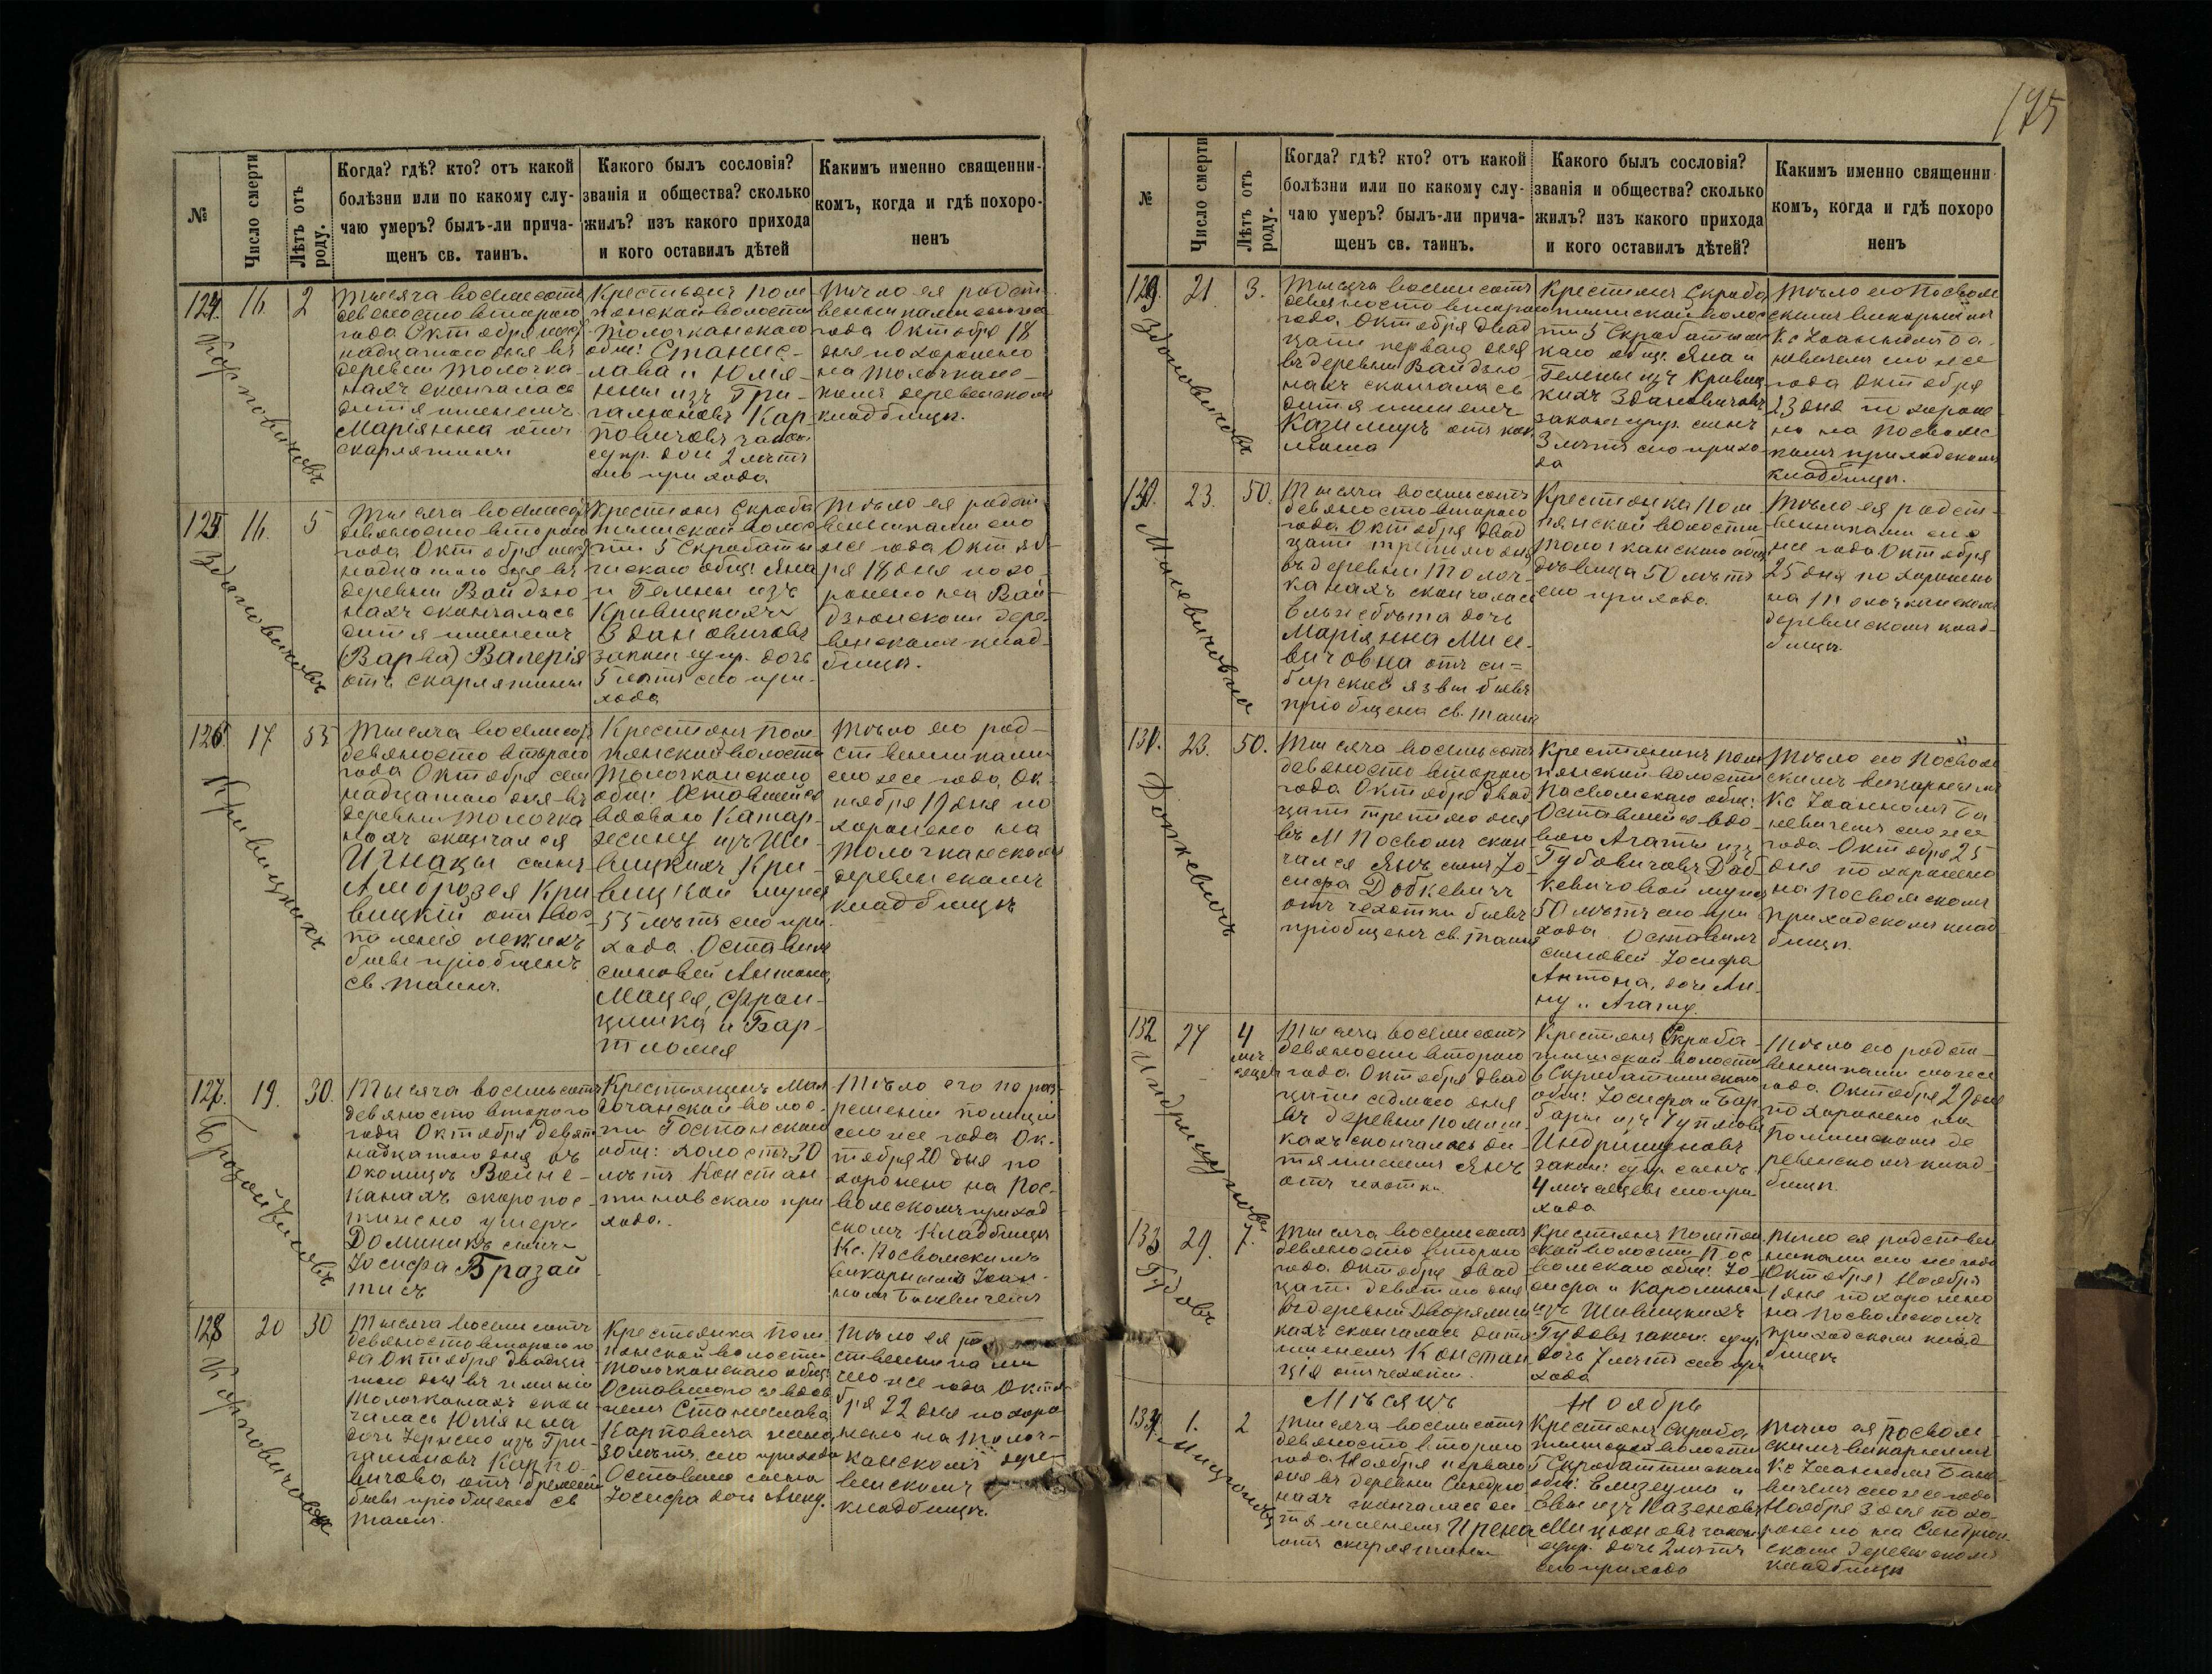 175
№
Число смерти
Лѣтъ отъ роду.
Когда? гдѣ? кто? отъ какой
болѣзни или по какому слу-
чаю умеръ? былъ-ли прича-
щенъ св. таинъ.
Какого былъ сословія?
званія и общества? сколько
жилъ? изъ какого прихода
и кого оставилъ дѣтей
Какимъ именно священни-
комъ, когда и гдѣ похоро-
ненъ
124. 16. 2
Карповичевъ
Тысяча восемьсотъ
девяносто второго
года Октября шест
надцатаго дня въ
деревни Толочка-
нахъ скончалась
дитя именемъ
Маріянна отъ
скарлятины
Крестьянъ Пом
пянской волости
Толочканского
общ: Станис-
лава и Юлія-
нны изъ Гри-
галюновъ Кар-
повичовъ закон.
супр. дочь 2 лѣтъ
сего прихода.
Тѣло ея родст
венниками сего же
года Октября 18
дня похоронено
на Толочканс-
комъ деревенскомъ
кладбищи.
125 16. 5
Здановичовъ
Тысяча восемьсотъ
девяносто второго
года Октября шест
надцатаго дня въ
деревни Вайдзю-
нахъ скончалась
дитя именемъ
(Варва) Валерія
отъ скарлятины
Крестьянъ Скроба
тишской волос
ти 5 Скробаты
шскаго общ: Яна
и Гелены изъ
Кривицкихъ
Здановичовъ
закон. супр. дочь
5 лѣтъ сего при-
хода
Тѣло ея родст
венниками сего
же года Октяб-
ря 18 дня похо-
ронено на Вай-
дзюнскомъ дере-
венскомъ клад-
бищи.
126. 17. 55
Кривицкихъ
Тысяча восемьсотъ
девяносто второго
года Октября сем
надцатаго дня въ
деревни Толочка
нахъ скончался
Игнацы сынъ
Амброзея Кри
вицкій отъ вос-
паленія легкихъ
бывъ пріобщенъ
св. таинъ.
Крестьянъ Пом
пянской волости
Толочканского
общ: Оставшейся
вдовою Катар-
жену изъ Ши-
вицкихъ Кри-
вицкой мужъ
55 лѣтъ сего при
хода. Оставилъ
сыновей Антона,
Мацея, Фран-
цишка и Бар-
тломея
Тѣло его род-
ственниками
сего же года Ок-
тября 19 дня по
хоронено на
Толочканскомъ
деревенскомъ
кладбищи
127. 19. 30.
Тысяча восемьсотъ
девяносто второго
года Октября девят
надцатаго дня въ
околицѣ Войне-
канахъ скоропос-
тижно умеръ
Доминикъ сынъ
Іосифа Бразай
тисъ
Крестьянинъ Мал
ской волос-
ти Гостанскаго
общ: холостъ 30
лѣтъ Констан
тиновскаго при
хода.
Тѣло его по раз-
решеніи полиціи
сего же года Ок-
тября 20 дня по
хоронено на Пос-
вольскомъ приход
скомъ кладбищи
Кс. Посвольскимъ
викарнымъ Іоан-
номъ Баневичемъ
128 20 30
Карповичова
Тысяча восемьсотъ
девяносто второго го
да Октября двадца
таго дня въ имѣніи
Толочканахъ скон
чалась Юліянна
дочь изъ Гри-
галюновъ Карпо-
вичова отъ
бывъ пріобщена св
таинъ.
Крестьянка Пом
пянской волости
Толочканскаго общ:
Оставшагося вдов
цемъ Станислава
Карповича жена
30 лѣтъ сего прихода
Оставила сына
Іосифа дочь Анну.
Тѣло ея род
ственниками
сего же года Октя-
бря 22 дня похоро
нено на Толоч-
канскомъ дере-
венскомъ
кладбищи.
№
Число смерти
Лѣтъ отъ роду.
Когда? гдѣ? кто? отъ какой
болѣзни или по какому слу-
чаю умеръ? былъ-ли прича-
щенъ св. таинъ.
Какого былъ сословія?
званія и общества? сколько
жилъ? изъ какого прихода
и кого оставилъ дѣтей?
Какимъ именно священни
комъ, когда и гдѣ похоро
ненъ
129. 21. 3.
Здановичовъ
Тысяча восемьсотъ
девяносто второго
года Октября двад
цать перваго дня
въ деревни Вайдзю
нахъ скончалась
дитя именемъ
Казимиръ отъ кок
люша
Крестьянъ Скроба
тишской волос
ти 5 Скробатыш
каго общ: Яна и
Гелены изъ Кривиц
кихъ Здановичовъ
закон. супр. сынъ
3 лѣтъ сего прихо-
да
Тѣло его Посволь
скимъ викарнымъ
Кс Іоанномъ Ба-
невичемъ сего же
года Октября
23 дня похороне-
но на Посвольс
комъ приходскомъ
кладбищи.
130. 23. 50.
Тысяча восемьсотъ
девяносто второго
года Октября двад
цать третьяго дня
въ деревни Толоч-
канахъ скончалась
Ельжебѣта дочь
Маріянна Мисе-
вичовна отъ си-
бирской язвы бывъ
пріобщена св. таинъ
Крестьянка Пом
пянской волости
Толочканскаго общ:
дѣвица 50 лѣтъ
сего прихода.
Тѣло ея родст-
венниками сего
же года Октября
25 дня похоронено
на Толочканскомъ
деревенскомъ клад-
бищи.
131. 23. 50.
Тысяча восемьсотъ
девяносто второго
года Октября двад
цать третьяго дня
въ М Посволь скон
чался Янъ сынъ Іо-
сифа Добкевичъ
отъ чехотки бывъ
пріобщенъ св. таинъ
Крестьянинъ Пом
пянской волости
Посвольскаго общ:
Оставшейся вдо-
вою Агаты изъ
Губовичовъ Доб-
кевичовой мужъ
50 лѣтъ сего при
хода Оставилъ
сыновей Іосифа
Антона, дочь Ан-
ну и Агату.
Тѣло его Посволь
скимъ викарнымъ
Кс Іоанномъ Ба
невичемъ сего же
года Октября 25
дня похоронено
на Посвольскомъ
приходскомъ клад-
бищи.
132 27 4 мѣсяцев
Индришуновъ
Тысяча восемьсотъ
девяносто второго
года Октября двад
цать седьмаго дня
въ деревни Помиш-
кахъ скончалась ди-
тя именемъ Янъ
отъ чехотки.
Крестьянъ Скроба-
тишской волости
5 Скробатишскаго
общ: Іосифа и Бар
бары изъ
Индришуновъ
закон: супр сынъ
4 мѣсяцевъ сего при
хода
Тѣло его родст-
венниками сего же
года Октября 29 дня
похоронено на
Помишскомъ де
ревенскомъ клад-
бищи.
133 29. 7.
Гудовъ
Тысяча восемьсотъ
девяносто второго
года Октября двад
цать девятаго дня
въ деревни Дворялиш
кахъ скончалась дитя
именемъ Констан
ція отъ чехотки.
Крестьянъ Помпян
ской волости Пос
вольскаго общ: Іо
сифа и Каролины
изъ Шивицкихъ
Гудовъ закон. супр.
дочь 7 лѣтъ сего при
хода
Тѣло ея родствен
никами сего же года
(Октября) Ноября
1 дня похоронено
на Посвольскомъ
приходскомъ клад
бищи
Мѣсяцъ Ноябрь
134. 1. 2
Мицюновъ
Тысяча восемьсотъ
девяносто второго
года Ноября перваго
дня въ деревни Синдрю
нахъ скончалась ди
тя именемъ Ирена
отъ скарлятины
Крестьянъ Скроба
тишской волости
5 Скробатишскаго
общ: Елизеуша и
Евы изъ Казеновъ
Мицюновъ закон:
супр. дочь 2 лѣтъ
сего прихода
Тѣло ея Посволь-
скимъ викарнымъ
Кс Іоанномъ Бане-
вичемъ сего же года
Ноября 3 дня похо-
ронено на Синдрюн-
скомъ деревенскомъ
кладбищи